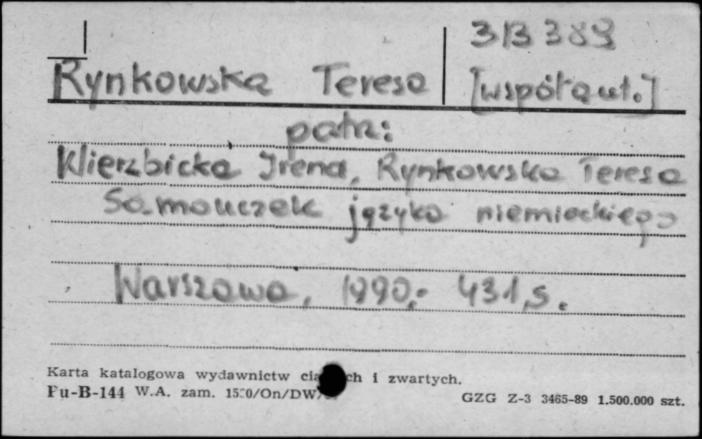 313389
Rynkowska Teresa [współaut.]
patrz:
Wierzbicka Irena, Rynkowska Teresa
Samouczek języka niemieckiego
Warszawa, 1990,- 431,s.
Karta katalogowa wydawnictw i zwartych.
Fu-B-144 W.A. zam. GZG Z-3 3465-89 1.500.000 szt.